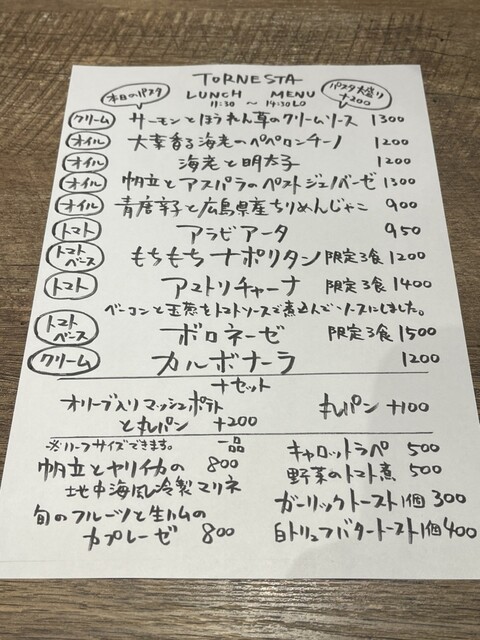 TORNESTA
本日のパスタ
LUNCH MENU
11:30 〜 14:30LO
パスタ大盛り
+200
クリーム サーモンとほうれん草のクリームソース 1300
オイル 大葉香る海老のペペロンチーノ 1200
オイル 海老と明太子 1200
オイル 帆立とアスパラのペストジェノバーゼ 1300
オイル 青唐辛子と広島県産ちりめんじゃこ 900
トマト アラビアータ 950
トマトベース もちもちナポリタン 限定3食 1200
トマト アストリチャーナ 限定3食 1400
ベーコンと玉葱をトマトソースで煮込んでソースにしました。
トマトベース ボロネーゼ 限定3食 1500
クリーム カルボナーラ 1200
+セット
オリーブ入りマッシュポテト
と丸パン +200
丸パン +100
※ハーフサイズできます。 一品
帆立とヤリイカの 800
地中海風冷製マリネ
旬のフルーツと生ハムの
カプレーゼ 800
キャロットラペ 500
野菜のトマト煮 500
ガーリックトースト1個 300
白トリュフバタートースト1個400